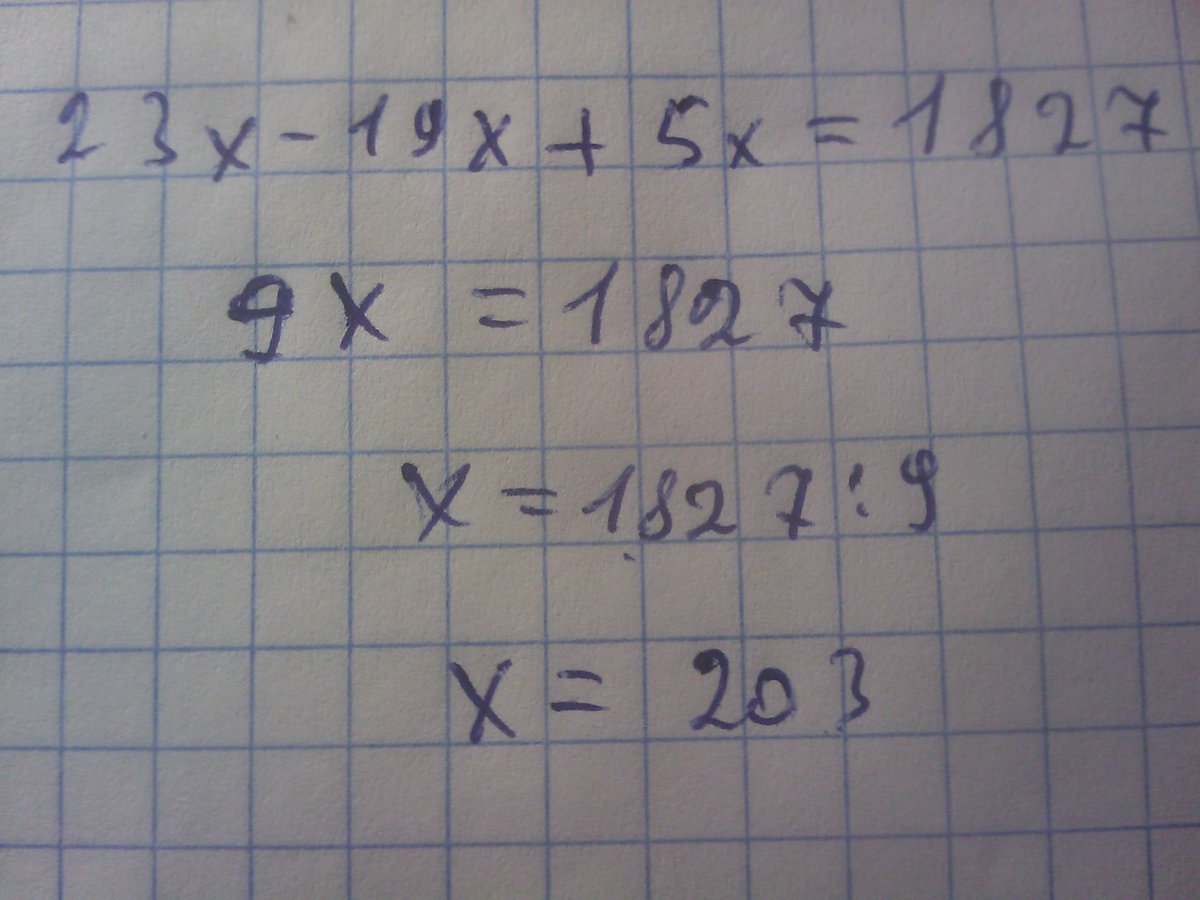 23x - 19x + 5x = 1827
9x = 1827
x = 1827 : 9
x = 203